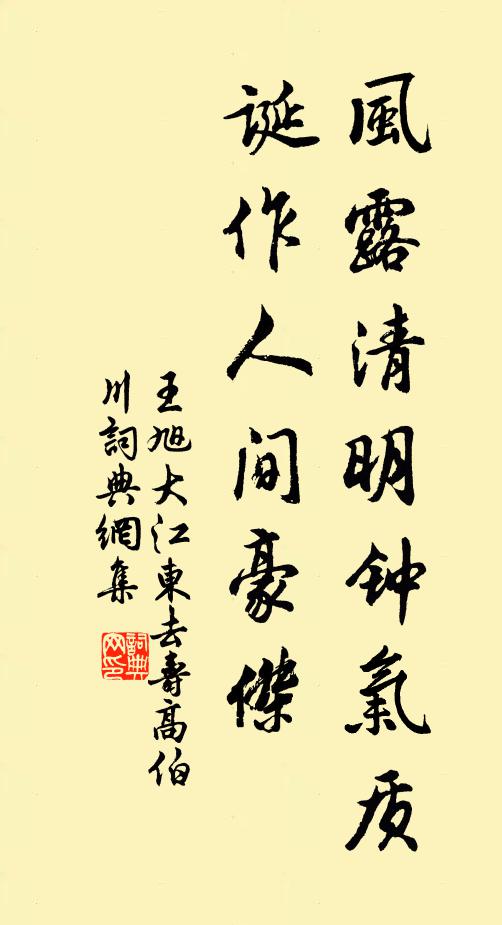 風露清明钟氣质
诞作人间豪傑
王旭大江東去壽高伯
川詞典網集
詞典
网印